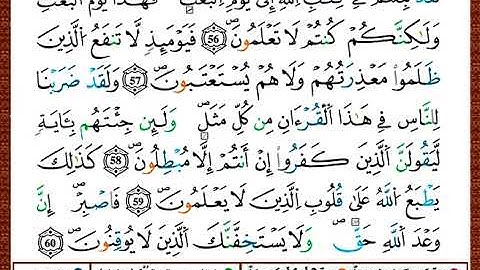 لَقَدْ لَبِثْتُمْ فِي كِتَٰبِ ٱللَّهِ إِلَىٰ يَوْمِ ٱلْبَعْثِ ۖ فَهَٰذَا يَوْمُ ٱلْبَعْثِ
وَلَٰكِنَّكُمْ كُنتُمْ لَا تَعْلَمُونَ ٥٦ فَيَوْمَئِذٍ لَّا تَنفَعُ ٱلَّذِينَ
ظَلَمُوا۟ مَعْذِرَتُهُمْ وَلَا هُمْ يُسْتَعْتَبُونَ ٥٧ وَلَقَدْ ضَرَبْنَا
لِلنَّاسِ فِي هَٰذَا ٱلْقُرْءَانِ مِن كُلِّ مَثَلٍ ۚ وَلَئِن جِئْتَهُم بِـَٔايَةٍ
لَّيَقُولَنَّ ٱلَّذِينَ كَفَرُوٓا۟ إِنْ أَنتُمْ إِلَّا مُبْطِلُونَ ٥٨ كَذَٰلِكَ
يَطْبَعُ ٱللَّهُ عَلَىٰ قُلُوبِ ٱلَّذِينَ لَا يَعْلَمُونَ ٥٩ فَٱصْبِرْ إِنَّ
وَعْدَ ٱللَّهِ حَقٌّ ۖ وَلَا يَسْتَخِفَّنَّكَ ٱلَّذِينَ لَا يُوقِنُونَ ٦٠